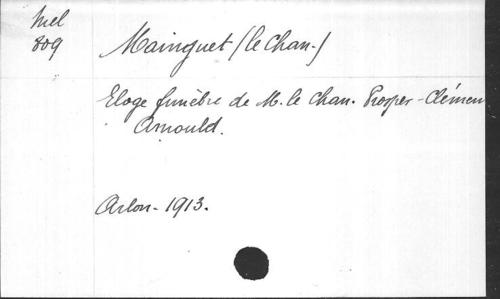 Mel
809
Mainguet (le Chan.)
Eloge funèbre de M. le Chan. Prosper-Clémen
Arnould.
Arlon - 1913.